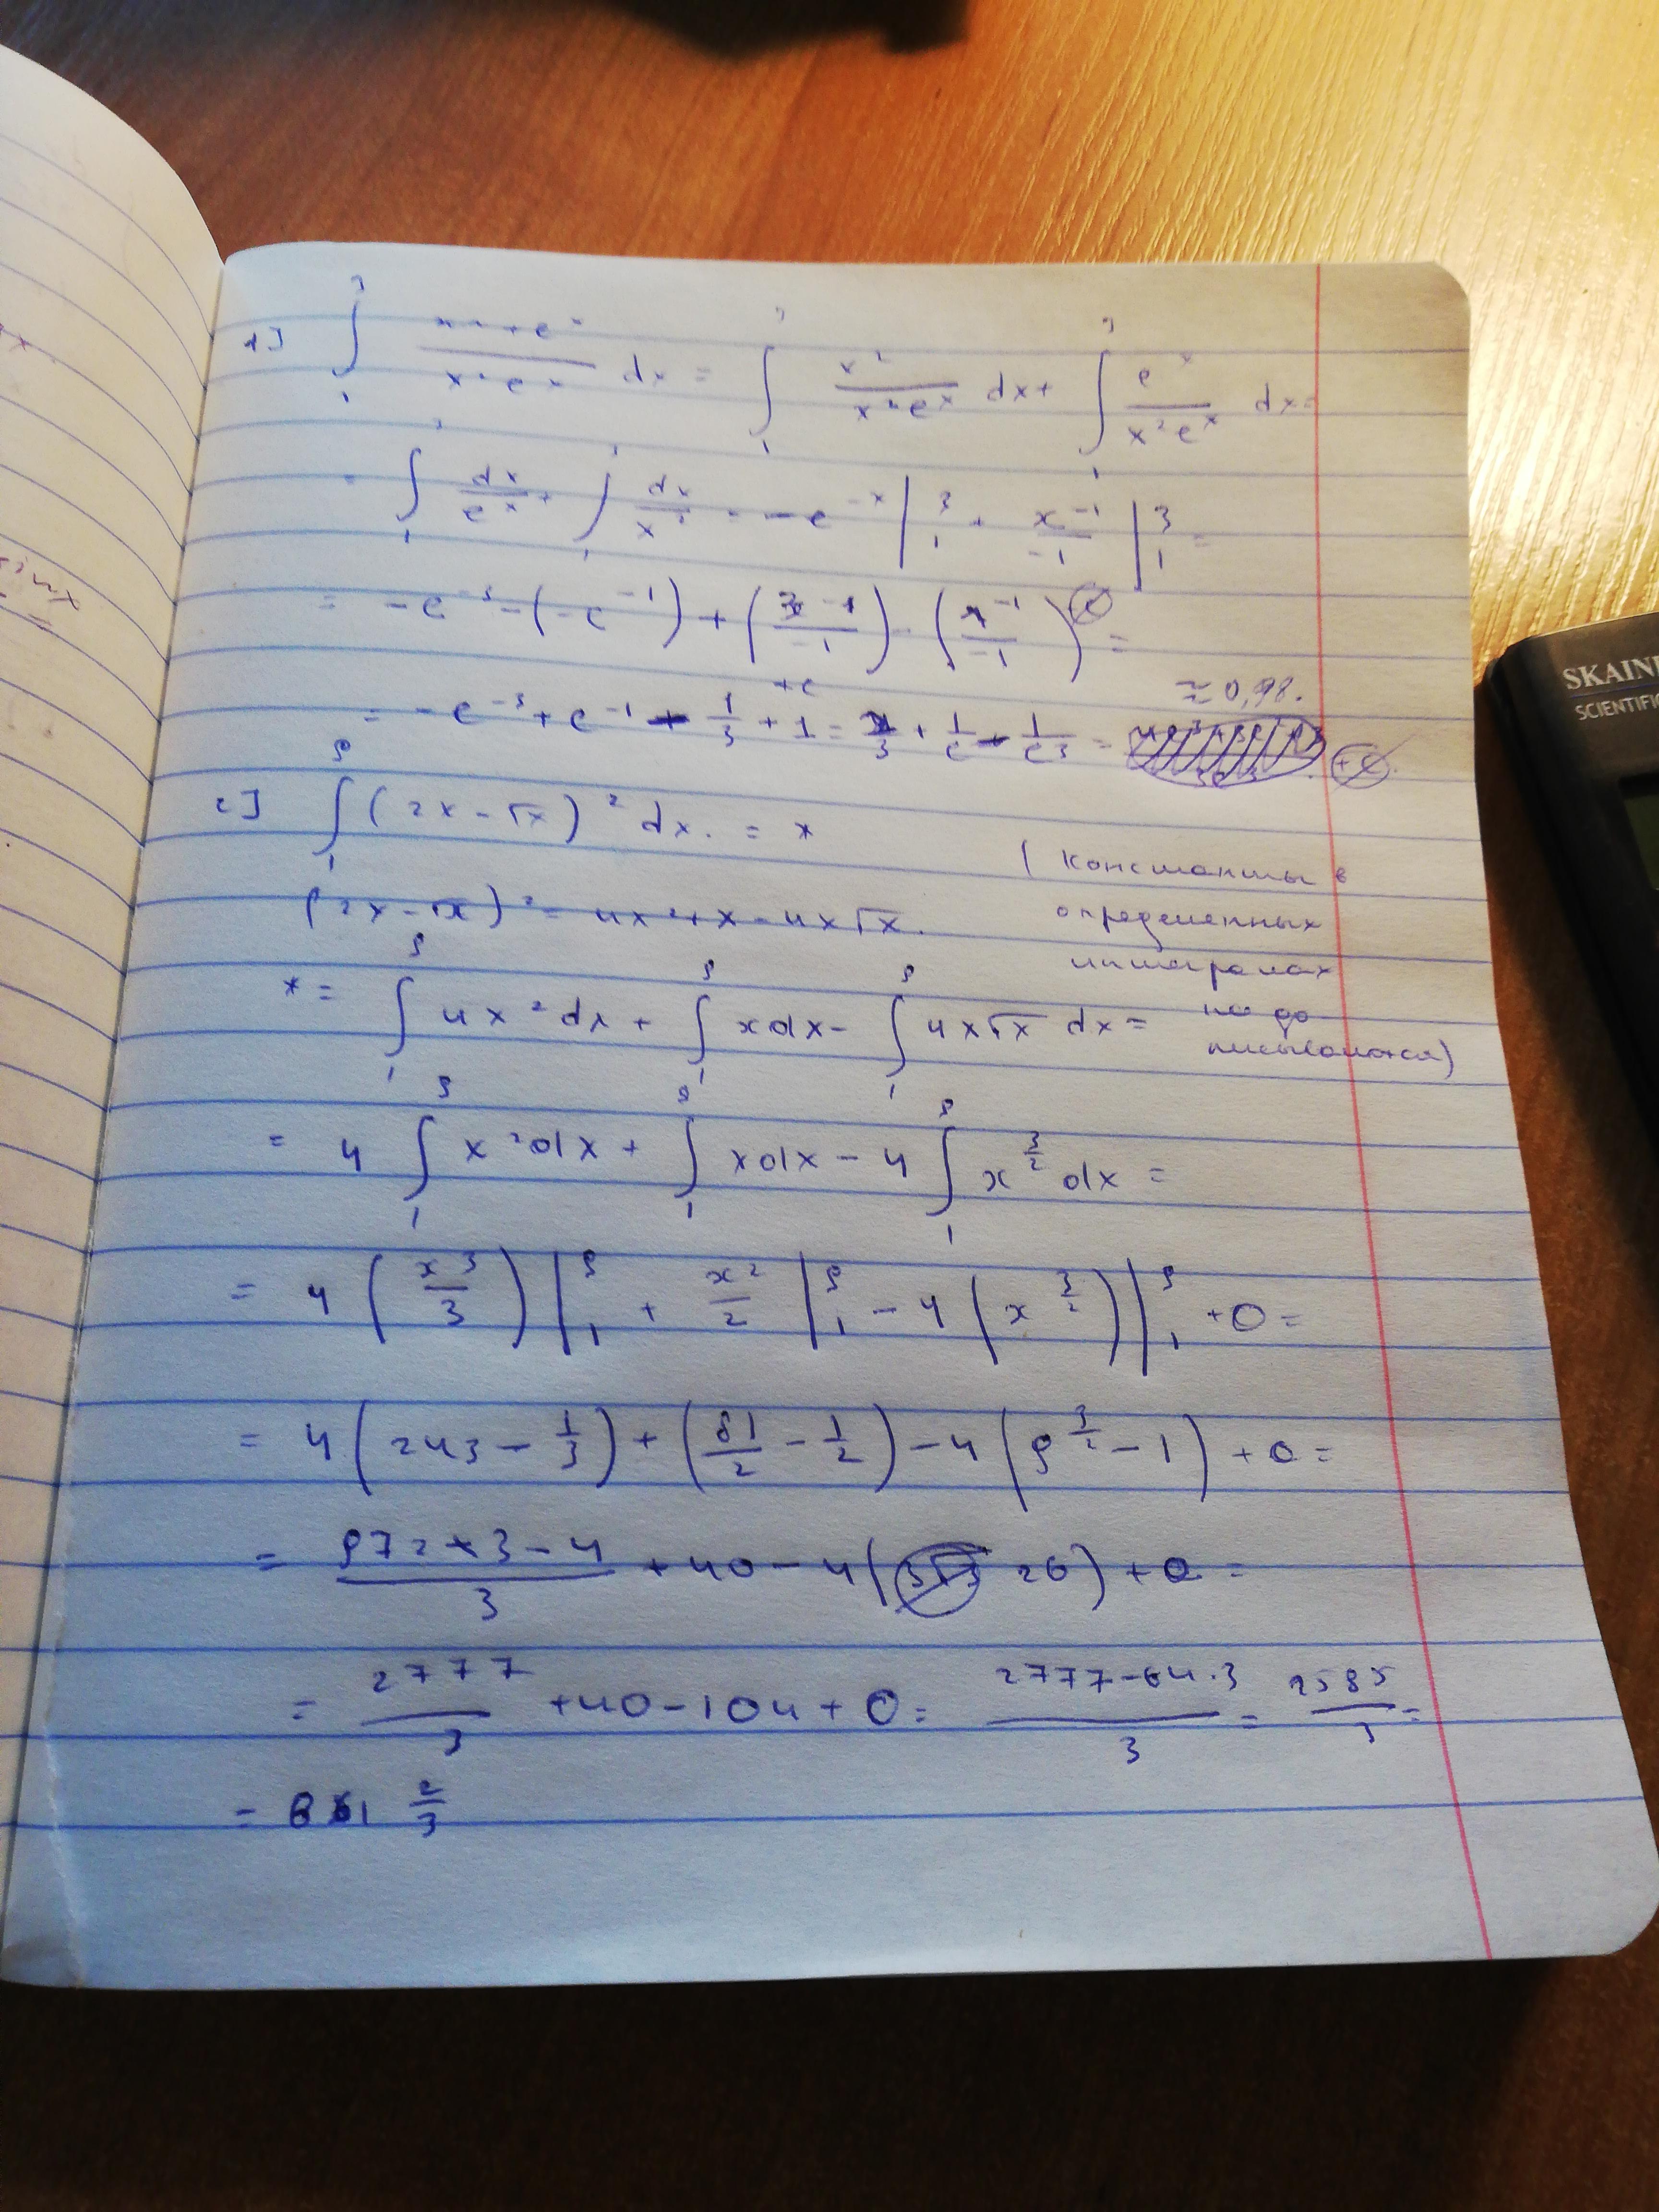 1] ∫₁³ (x²+eˣ)/(x²eˣ) dx = ∫₁³ x²/(x²eˣ) dx + ∫₁³ eˣ/(x²eˣ) dx =
= ∫₁³ dx/eˣ + ∫₁³ dx/x² = -e⁻ˣ |₁³ + x⁻¹/-1 |₁³ =
= -e⁻³ - (-e⁻¹) + (3⁻¹/-1) - (1⁻¹/-1) =
= -e⁻³ + e⁻¹ - 1/3 + 1 = 2/3 + 1/e - 1/e³ = ≈ 0,98.
2] ∫₁⁹ (2x - √x)² dx. = *
(2x - √x)² = 4x² + x - 4x√x.
(Константы в
определенных
интегралах
не до
писываются)
* = ∫₁⁹ 4x² dx + ∫₁⁹ x dx - ∫₁⁹ 4x√x dx =
= 4 ∫₁⁹ x² dx + ∫₁⁹ x dx - 4 ∫₁⁹ x^(3/2) dx =
= 4 (x³/3) |₁⁹ + x²/2 |₁⁹ - 4 (x^(3/2)) |₁⁹ + 0 =
= 4 (243 - 1/3) + (81/2 - 1/2) - 4 (9^(3/2) - 1) + 0 =
= (972 * 3 - 4)/3 + 40 - 4( 26) + 0 =
= 2777/3 + 40 - 104 + 0 = (2777 - 64·3)/3 = 2585/3 =
= 861 2/3
SKAIN
SCIENTIFI